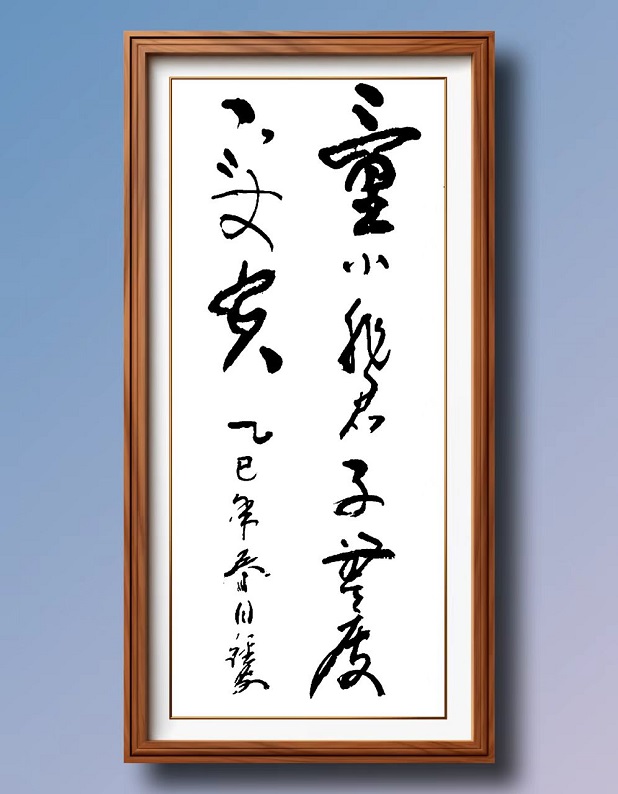 量小非君子無度
不丈夫
乙巳年春日